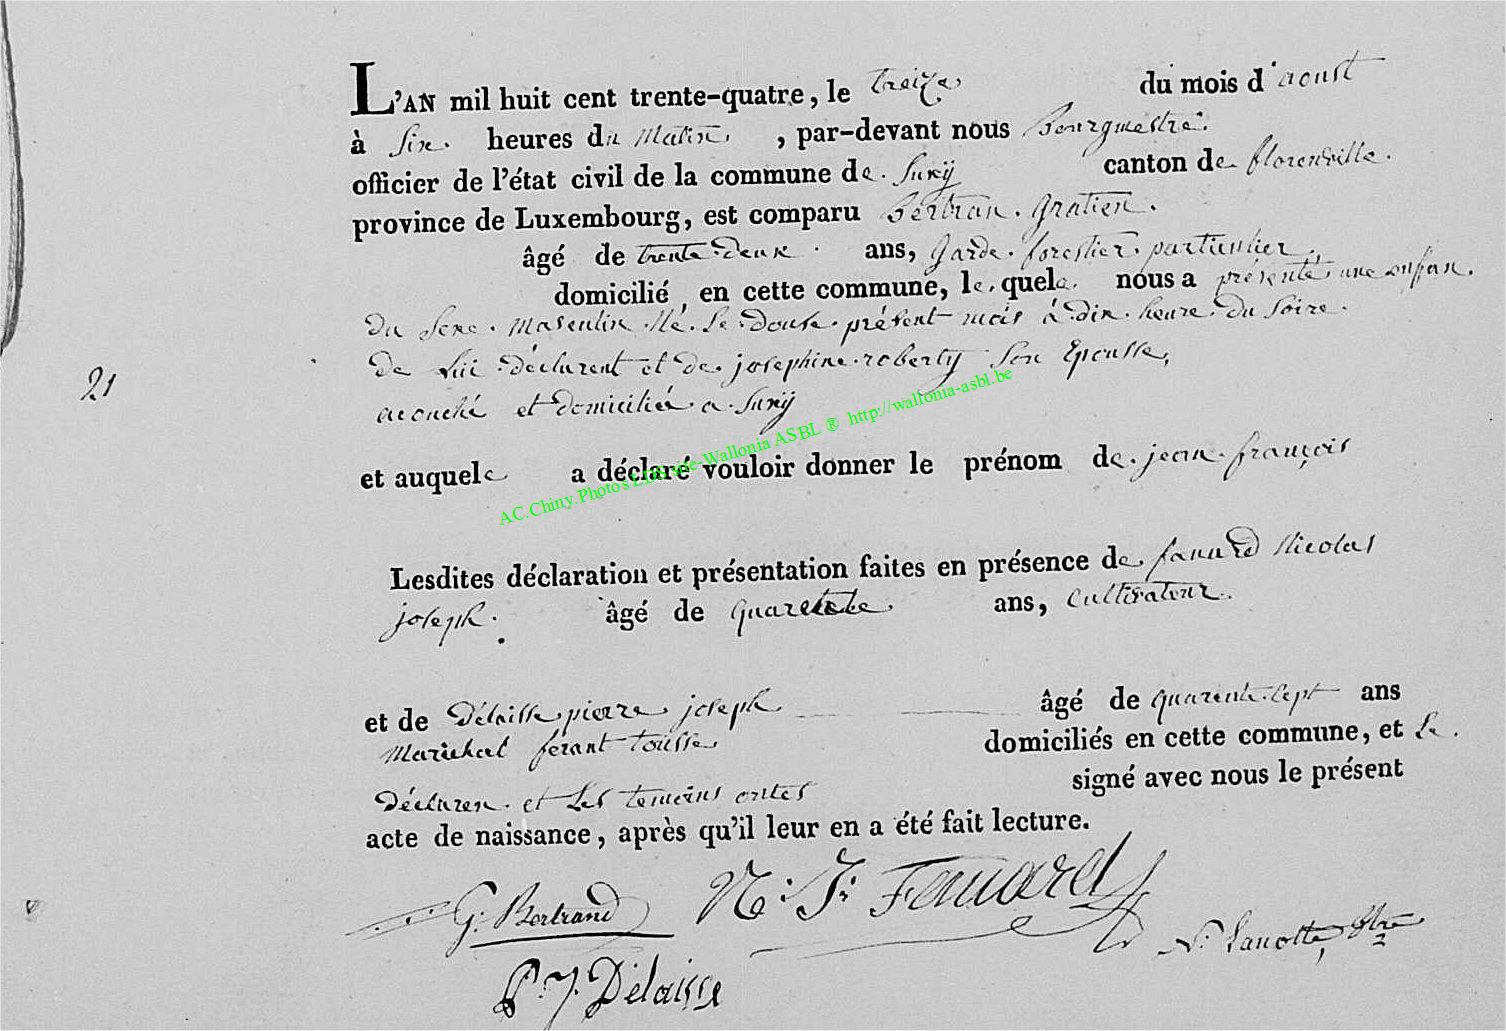 L'AN mil huit cent trente-quatre, le treize du mois d'aoust
à six heures du matin, par-devant nous Bourgmestre
officier de l'état civil de la commune de Suxÿ canton de florenville
province de Luxembourg, est comparu Bertran gratien
âgé de trente deux ans, garde forestier particulier
domicilié en cette commune, le quele nous a présenté une enfan
du sexe masculin né le douse présent mois à dix heure du soire
de lui déclarent et de josephine roberty son Epousse,
acouché et domiciliée a Suxÿ
21
AC.Chiny.Photos LDS site-Wallonia ASBL ® http://wallonia-asbl.be
et auquele a déclaré vouloir donner le prénom de jean françois
Lesdites déclaration et présentation faites en présence de fanard Nicolas
joseph âgé de quarente ans, cultivateur
et de Délaisse pierre joseph âgé de quarente sept ans
marichal ferant tousse domiciliés en cette commune, et le
déclaren et les temoins ontes signé avec nous le présent
acte de naissance, après qu'il leur en a été fait lecture.
G. Bertrand N. J. Fanard
N. Lanotte, Btre
P. J. Délaisse